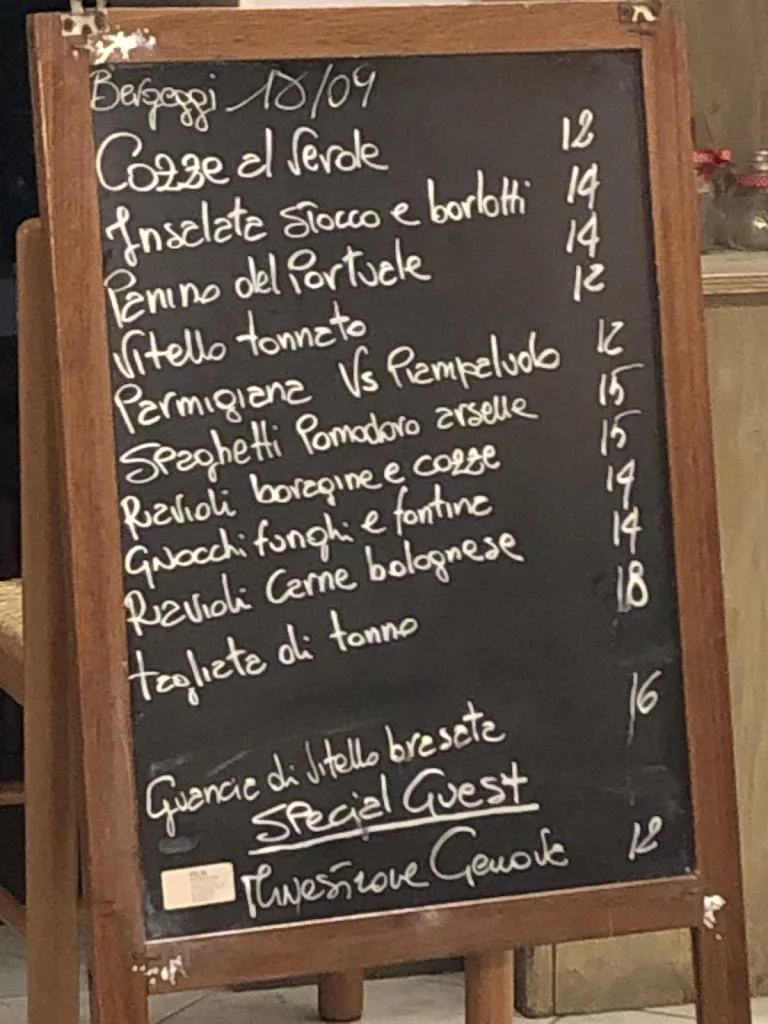 Bergeggi 10/09
Cozze al Verde 12
Insalata Stocco e borlotti 14
Panino del Portuale 14
Vitello tonnato 12
Parmigiana Vs Piampaludo 12
Spaghetti Pomodoro arselle 15
Ravioli boragine e cozze 15
Gnocchi funghi e fontina 14
Ravioli Carne bolognese 14
tagliata di tonno 18
Guancie di Vitello brasata 16
Special Guest
Minestrone Genova 12